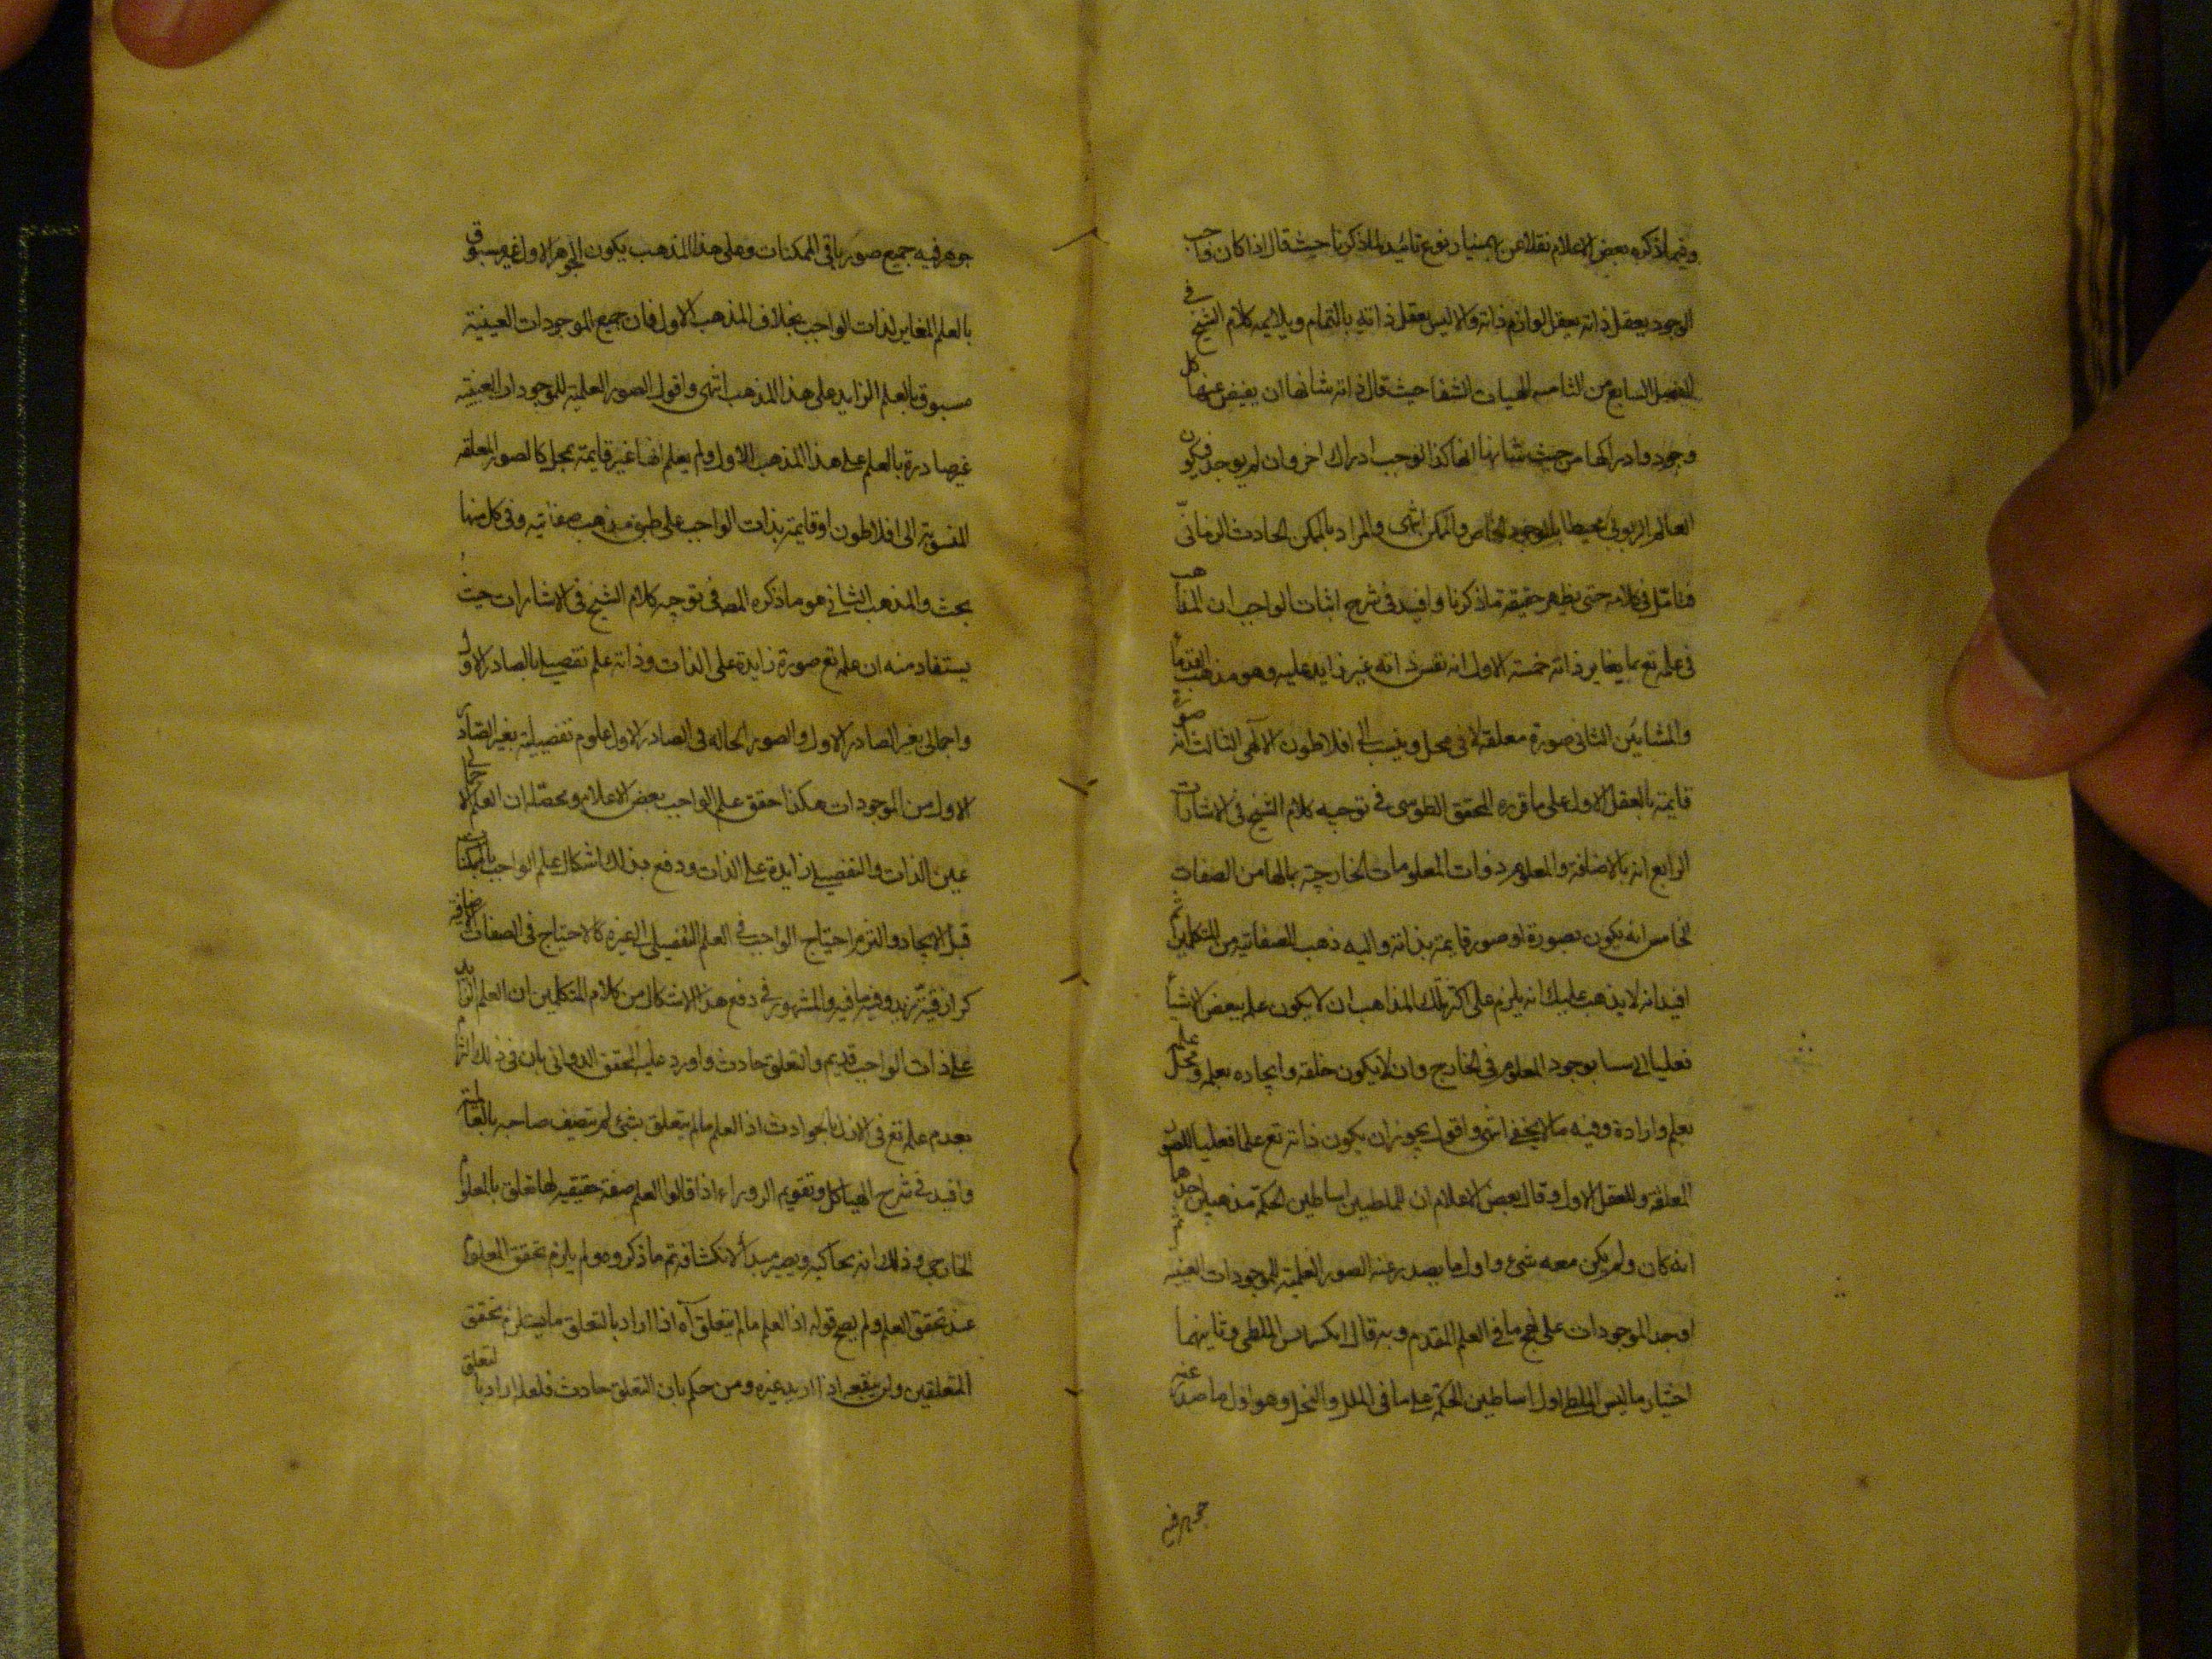 وفيما ذكره بعض الاعلام نقلا عن بهمنيار نوع تائيد لما ذكرنا حيث قال اذا كان واجب
الوجود يعقل ذاته يعقل لوازم ذاته والا ليس يعقل ذاته بالتمام ويلايمه كلام الشيخ في
الفصل السابع من الثامنه الهيات الشفا حيث قال ذاته شانها ان يفيض عنها كل
وجود وادراكها من حيث شانها انها كذا يوجب ادراك اخر وان لم يوجد فيكون
العالم الربوبي محيطا بالوجود الحاصل والممكن انتهى والمراد بالممكن الحادث الزماني
فتامل في كلامه حتى يظهر حقيقة ما ذكرنا وافيد في شرح اثبات الواجب ان المذاهب
في علمه تع بما يغاير ذاته خمسة الاول انه نفس ذاته غير زايد عليه وهو مذهب القدماء
والمشائين الثاني صورة معلقة لا في محل وينسب الى افلاطون الالهي الثالث انه صورة
قايمة بالعقل الاول على ما قرره المحقق الطوسي في توجيه كلام الشيخ في الاشارات
الرابع انه بالاضافة والمعلوم ذوات المعلومات الخارجية بمالها من الصفات
الخامس انه يكون بصورة او صور قايمة بذاته واليه ذهب الصفاتية من المتكلمين ثم
افيد انه لا يذهب عليك انه يلزم على اكثر تلك المذاهب ان لا يكون علمه ببعض الاشياء
فعليا اي سببا لوجود المعلوم في الخارج وان لا يكون خلقه وايجاده بعلم
بعلم وارادة وفيه ما لا يخفى انتهى واقول يجوز ان يكون ذاته تع علما فعليا للصور
المعلقة وللعقل الاول وقال بعض الاعلام ان للملطيين اساطين الحكمة مذهبين احدهما
انه كان ولم يكن معه شئ واول ما يصدر عنه الصور العلمية للموجودات العينيه
اوجد الموجودات على نهج ما في العلم المقدم وبه قال انكسمانس الملطي وثانيهما
اختيار ماليس الملطي اول اساطين الحكمة على ما في الملل والنحل وهو اول ما صدر عنه
جوهر فيه
جوهر فيه جميع صور باقي الممكنات وعلى هذا المذهب يكون الجوهر الاول غير مسبوق
بالعلم المغاير لذات الواجب بخلاف المذهب الاول فان جميع الموجودات العينية
مسبوق بالعلم الزايد على هذا المذهب انتهى واقول الصور العلمية للموجودات العينية
غير صادرة بالعلم على هذا المذهب الاول ولم يعلم انها غير قايمة بمحل كالصور المعلقه
المنسوبة الى افلاطون او قايمة بذات الواجب على طبق مذهب صفاتيه وفي كل منهما
بحث والمذهب الثاني هو ما ذكره المص في توجيه كلام الشيخ في الاشارات حيث
يستفاد منه ان علمه تع صورة زايدة على الذات وذاته علم تفصيلي بالصادر الاول
واجمالي بغير الصادر الاول والصور الحاله في الصادر الاول علوم تفصيلية بغير الصادر
الاول من الموجودات هكذا حقق علم الواجب بعض الاعلام ومحصله ان العلم الاجمالي
عين الذات والتفصيلي زايدة على الذات ودفع بذلك اشكال علم الواجب بالممكنات
قبل الايجاد والتزم احتياج الواجب في العلم التفصيلي الى غيره كالاحتياج في الصفات الاضافية
كرازقية زيد وفيه ما فيه والمشهور في دفع هذا الاشكال من كلام المتكلمين ان العلم الزايد
على ذات الواجب قديم والتعلق حادث واورد عليه المحقق الدواني بان في ذلك التزام
بعدم علمه تع في الازل بالحوادث اذ العلم ما لم يتعلق بشئ لم يتصف صاحبه بالعالمية
وافيد في شرح الهياكل وتقويم الزوراء اذا قالوا العلم صفة حقيقيه لها تعلق بالمعلوم
الخارجي وذلك انه يحاكيه ويصير مبدأ لانكشافه تم ما ذكروه ولم يلزم تحقق المعلوم
عند تحقق العلم ولم يصح قوله اذ العلم ما لم يتعلق آه اذا اراد بالتعلق ما يستلزم تحقق
المتعلقين ولم ينفعه اذا اريد غيره ومن حكم بان التعلق حادث فلعله اراد بالتعلق